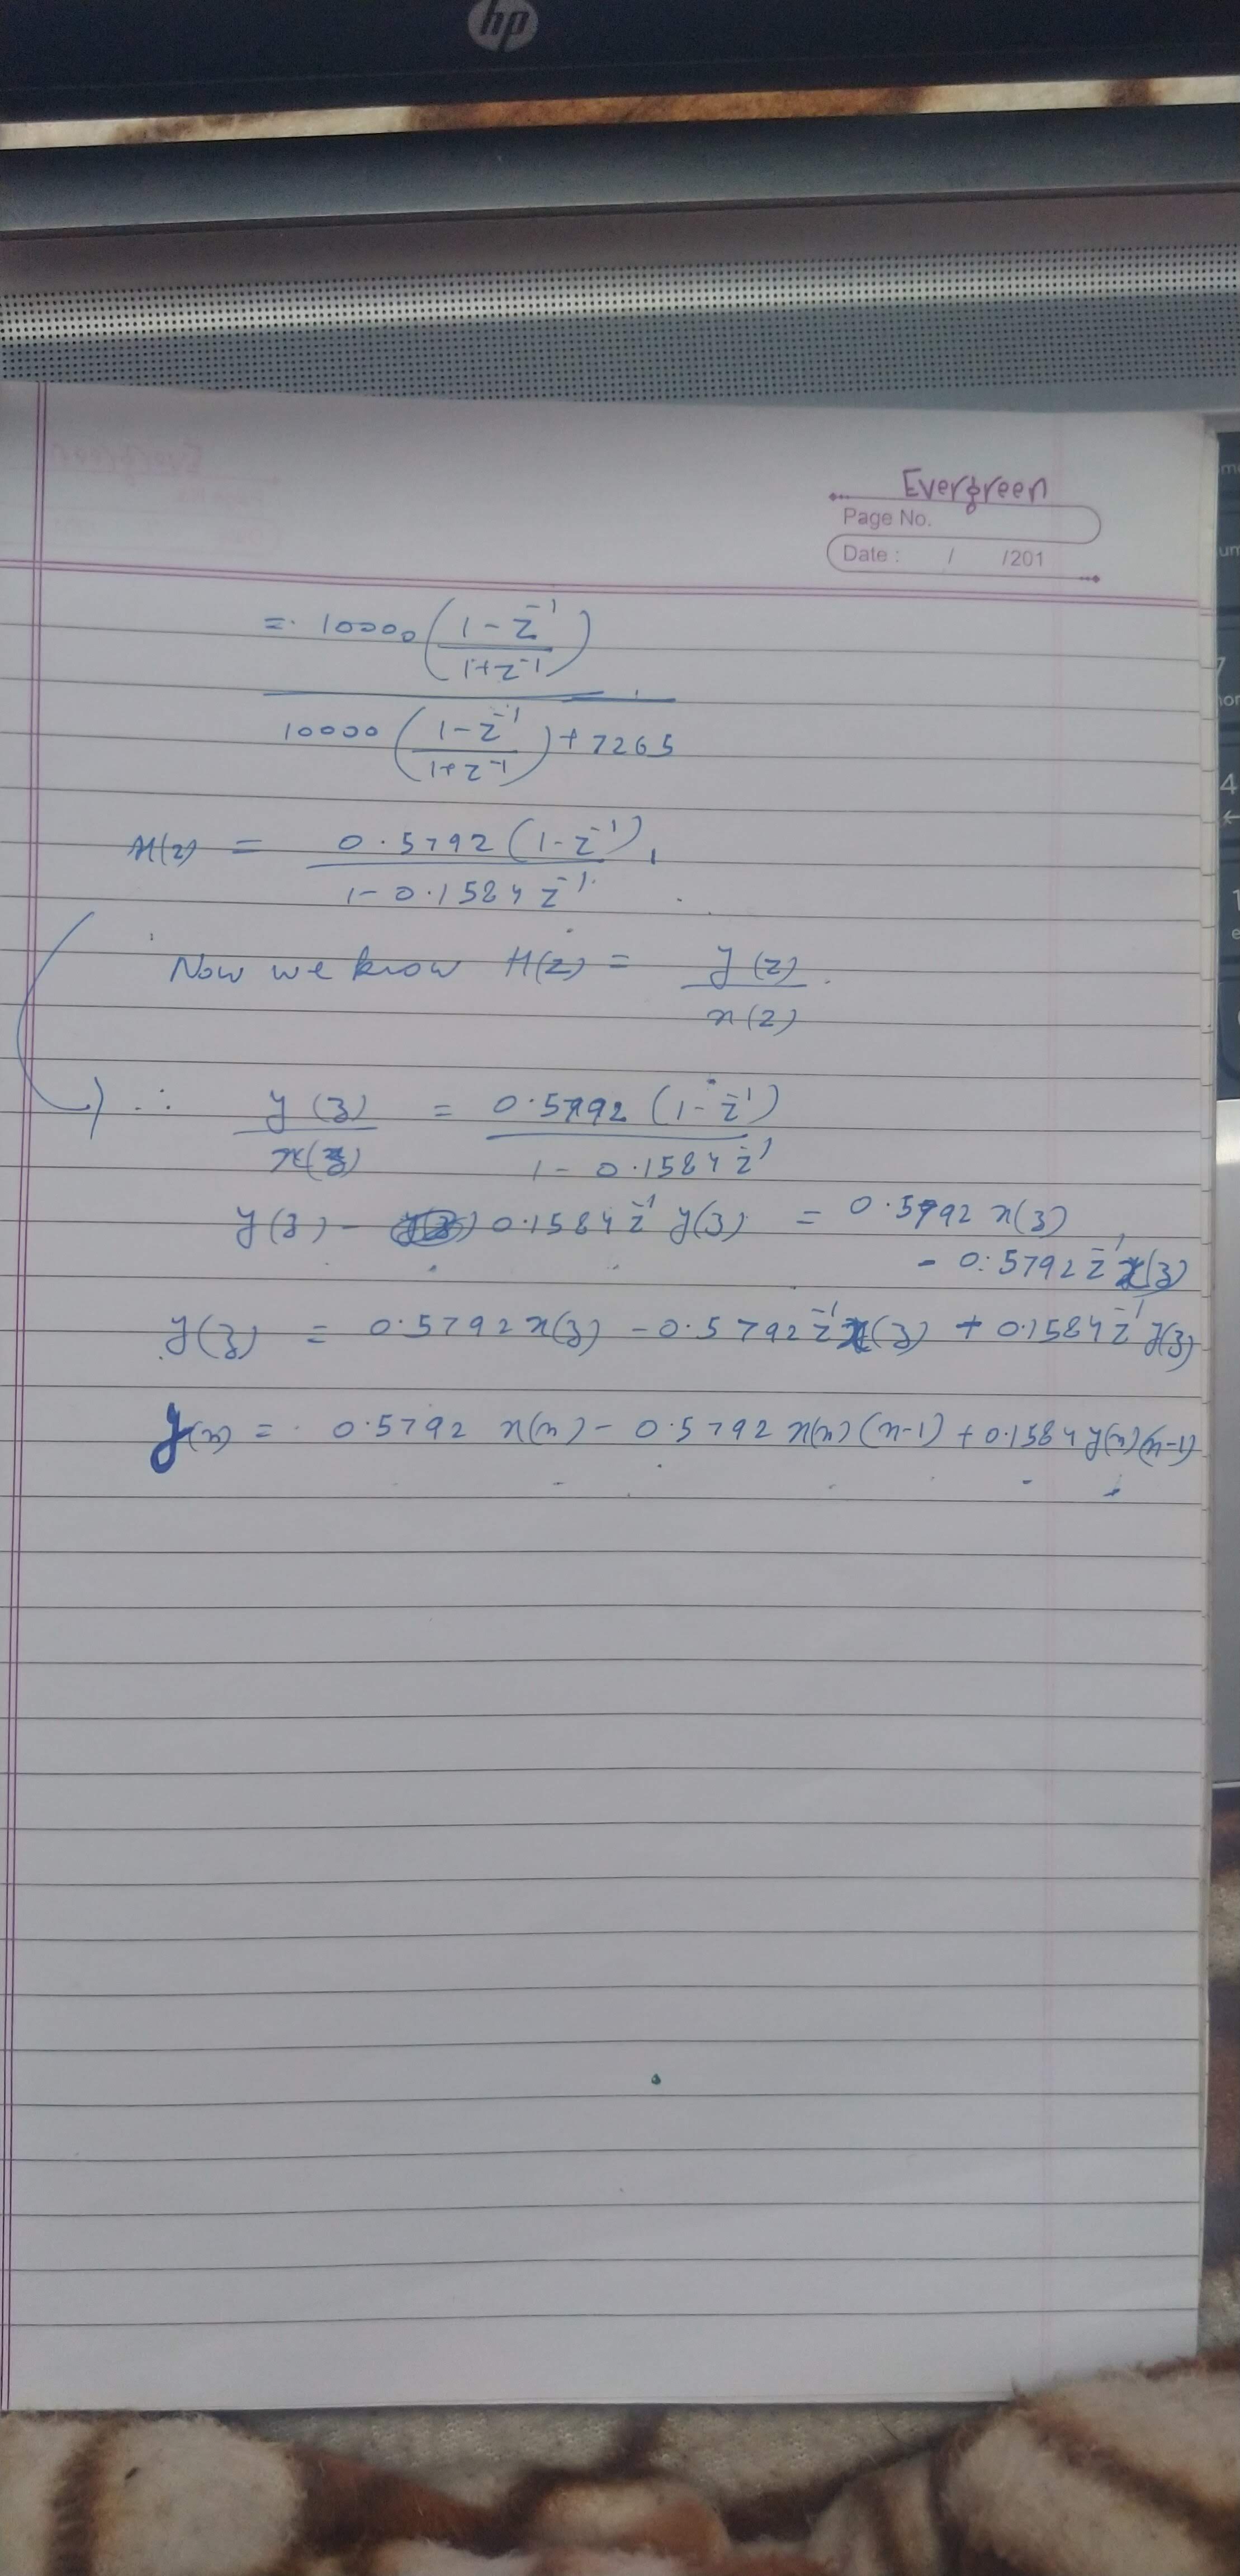 hp
Evergreen
Page No.
Date : / /201
= 10000 (1 - z^-1 / 1+z^-1)
10000 (1 - z^-1 / 1+z^-1) + 7265
H(z) = 0.5792 (1 - z^-1)
1 - 0.1584 z^-1
Now we know H(z) = y(z)
x(z)
∴ y(z) = 0.5792 (1 - z^-1)
x(z) 1 - 0.1584 z^-1
y(z) - 0.1584 z^-1 y(z) = 0.5792 x(z)
- 0.5792 z^-1 x(z)
y(z) = 0.5792 x(z) - 0.5792 z^-1 x(z) + 0.1584 z^-1 y(z)
y(n) = 0.5792 x(n) - 0.5792 x(n) (n-1) + 0.1584 y(n) (n-1)